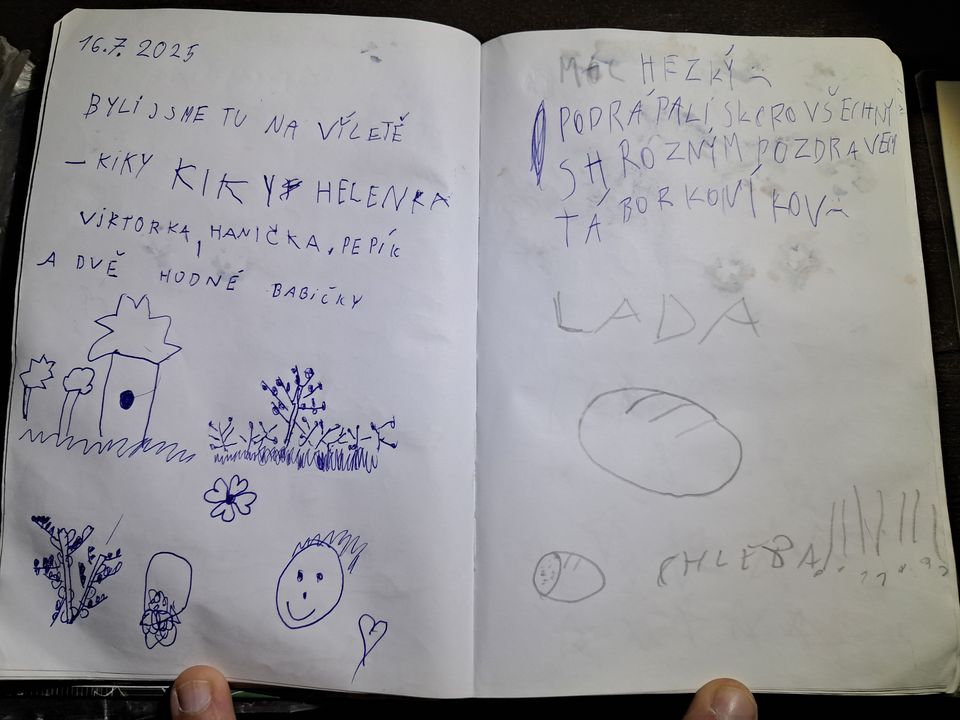 16.7. 2025
BYLI JSME TU NA VÍLETĚ
– KIKY KIKY HELENKA
VIRTORKA, HANIČKA, PEPÍK
A DVĚ HODNÉ BABIČKY
MÁC HEZKÝ
PODRÁPALI SKORO VŠECHNY
S HRŮZNÝM POZDRAVEM
TÁBORKONÍKOV
LADA
CHLEBA